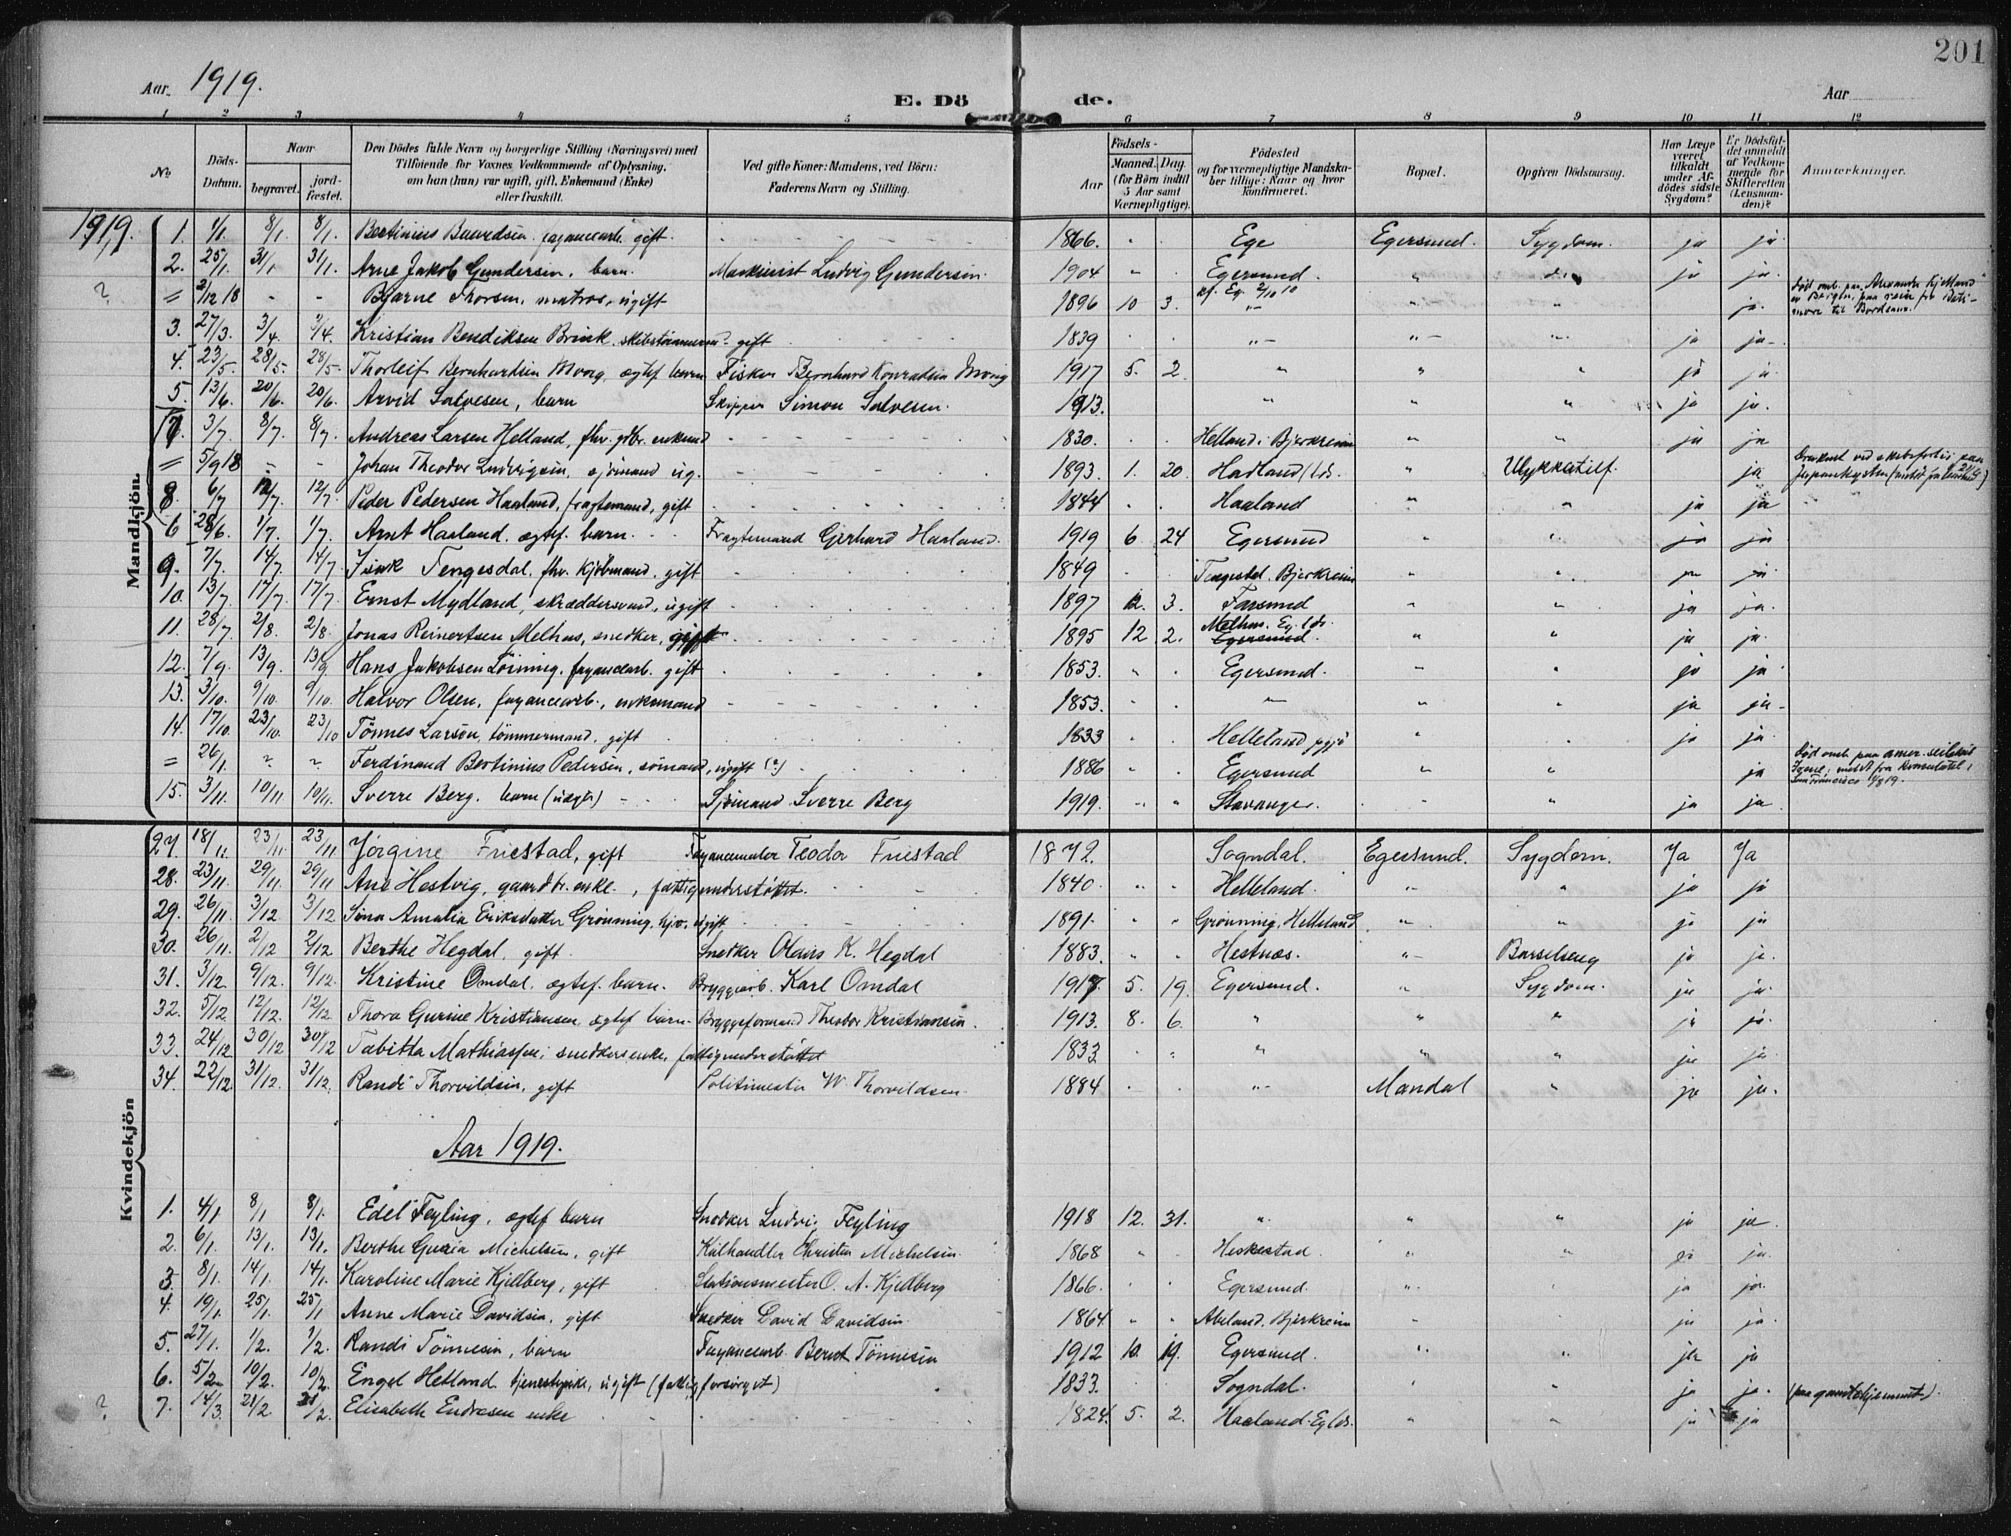 201
Aar 1919.
E. Döde.
Aar
1 2 3 4 5 6 7 8 9 10 11 12
No. | Döds-Datum. | Naar begravet. | jordfæstet. | Den Dödes fulde Navn og borgerlige Stilling (Næringsvei) med Tilföiende for Voxnes Vedkommende af Oplysning, om han (hun) var ugift, gift, Enkemand (Enke) eller fraskilt. | Ved gifte Koner: Mandens, ved Börn: Faderens Navn og Stilling. | Födsels- Aar | Maaned. Dag. (for Börn indtil 5 Aar samt Værnepligtige). | Födested og for værnepligtige Mandskaber tillige: Naar og hvor konfirmeret. | Bopæl. | Opgiven Dödsaarsag. | Har Læge været tilkaldt under Afdödes sidste Sygdom? | Er Dödsfaldet anmeldt af Vedkommende for Skifteretten (Lensmanden)? | Anmærkninger.
Mandkjön.
1919. 1. 1/1. 8/1. 8/1. Bertinius Baardsen fayancearb. gift. 1866. Ege Egersund. Sygdom. ja ja.
2. 25/1. 31/1. 31/1. Arne Jakob Gundersen, barn. Maskinist Ludvig Gundersen. 1904 Egersund. " ja ja.
? = 2/12 18 - - Bjarne Thorsen, matros, ugift 1896 10 3. kf. Eg. 2/10 10 " ja.
3. 27/3. 3/4. 3/4. Kristian Bendiksen Brink, gift 1839 " ja ja
4. 23/5. 28/5. 28/5. Thorleif Bernhardsen Mong, ægtef. barn Fisker Bernhard Konradsen Mong 1917 5. 2. " " " ja ja.
5. 13/6. 20/6. 20/6. Arvid Salvesen, barn Skipper Simon Salvesen. 1913. " " " ja ja.
7. 3/7. 8/7. 8/7. Andreas Larsen Helland, fhv. gdbr. enkemd 1830. Helland i Bjerkreim " " ja ja
= 5/9 18 - - Johan Theodor Ludvigsen, sjömand ug. 1893. 1. 20. Hadland " Ulykkestilf. ja
8. 6/7 12/7. 12/7. Peder Pedersen Haaland, fragtemand, gift 1844 Haaland " " ja ja
6 28/6. 1/7. 1/7. Arnt Haaland, ægtef. barn. Fragtemand Gerhard Haaland. 1919 6 24 Egersund " " ja ja
9. 7/7. 14/7. 14/7. Isak Tengesdal, fhv. kjöbmand, gift 1849 Tengesdal. Bjerkreim " " ja ja
10. 13/7. 17/7. 17/7. Ernst Mydland, skræddersvend, ugift 1897 12. 3. Farsund " " ja ja.
11. 28/7. 2/8. 2/8. Jonas Reinertsen Melhus, snedker, gift 1895 12 2. Melhus. Eg. lds. Egersund. " " ja ja.
12. 7/9. 13/9. 13/9. Hans Jakobsen Lönning, fayancearb. gift 1853. Egersund. " " ja ja
13. 3/10. 9/10. 9/10. Halvor Olsen, fayancearb., enkemand 1853. " " " ja ja
14. 17/10. 23/10. 23/10 Tönnes Larsen, tömmermand, gift 1833 Helleland " " ja ja.
= 26/1. ? ? Ferdinand Bertinius Pedersen, sömand, ugift (?) 1886 Egersund " " ja
15. 3/11. 10/11 10/11. Sverre Berg, barn (uægte) Sjömand Sverre Berg 1919. " " Stavanger. " " ja ja
Kvindekjön
27. 18/11. 23/11. 23/11 Jörgine Friestad, gift Fayancemaler Teodor Friestad 1872. Sogndal. Egersund. Sygdom. Ja Ja
28. 23/11. 29/11. 29/11 Ane Hestvig, gaardbr. enke, fattigunderstöttet. 1840. Helleland. " " ja ja
29. 26/11. 3/12 3/12. Sina Amalia Eriksdatter Grönning, ugift 1891. " " Grönning, Helleland " " ja ja
30. 26/11. 2/12 2/12 Berthe Hegdal, gift. Snedker Olaus K. Hegdal 1883. Hestnæs. " Barselseng ja ja.
31. 3/12 9/12. 9/12. Kristine Omdal, ægtef. barn. Bryggearb. Karl Omdal 1917. 5. 19. Egersund. " Sygdom. ja ja.
32. 5/12 12/12. 12/12. Thora Gurine Kristiansen ægtef barn Bryggeformand Theodor Kristiansen. 1913. 8. 6. " " " ja ja.
33. 24/12 30/12 30/12 Tabitta Mathiassen; snedkersenke, fattigunderstöttet 1833 " " " ja ja.
34. 22/12 31/12. 31/12. Randi Thorvildsen, gift Politimester W. Thorvildsen 1884 " Mandal " ja ja.
Aar 1919.
1. 4/1. 8/1 8/1. Edel Feyling, ægtef barn Snedker Ludvig Feyling 1918 12. 31. " " " ja ja
2. 6/1. 13/1. 13/1. Berthe Guria Michelsen, gift Kulhandler Christen Michelsen. 1868 Heskestad. " " ja ja.
3. 8/1. 14/1. 14/1. Karoline Marie Kjellberg, gift Stationsmester O. A. Kjellberg 1866. Egersund. " " ja ja.
4. 19/1. 25/1. 25/1 Anne Marie Davidsen, gift Snedker David Davidsen. 1864. " " Abeland. Bjerkreim " " ja ja.
5. 27/1. 1/2. 1/2. Randi Tönnesen, barn Fayancearb. Berent Tönnesen 1912 10. 19. Egersund. " " ja ja
6. 5/2 10/2. 10/2. Engel Hetland. tjenestepike, ugift (fattigforsörget) 1833. Sogndal. " " ja ja. (paa gamlehjemmet).
? 7. 14/3. 21/2 21/2. Elisabeth Endresen enke 1824. 5. 2. Haaland. Eg. lds. " " ja ja